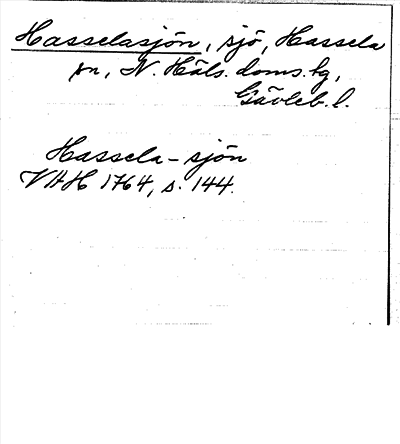 Hasselasjön, sjö, Hassela
sn, N. Häls. doms.hg,
Gävleb. l.
Hassela-sjön
VAH 1764, s. 144.